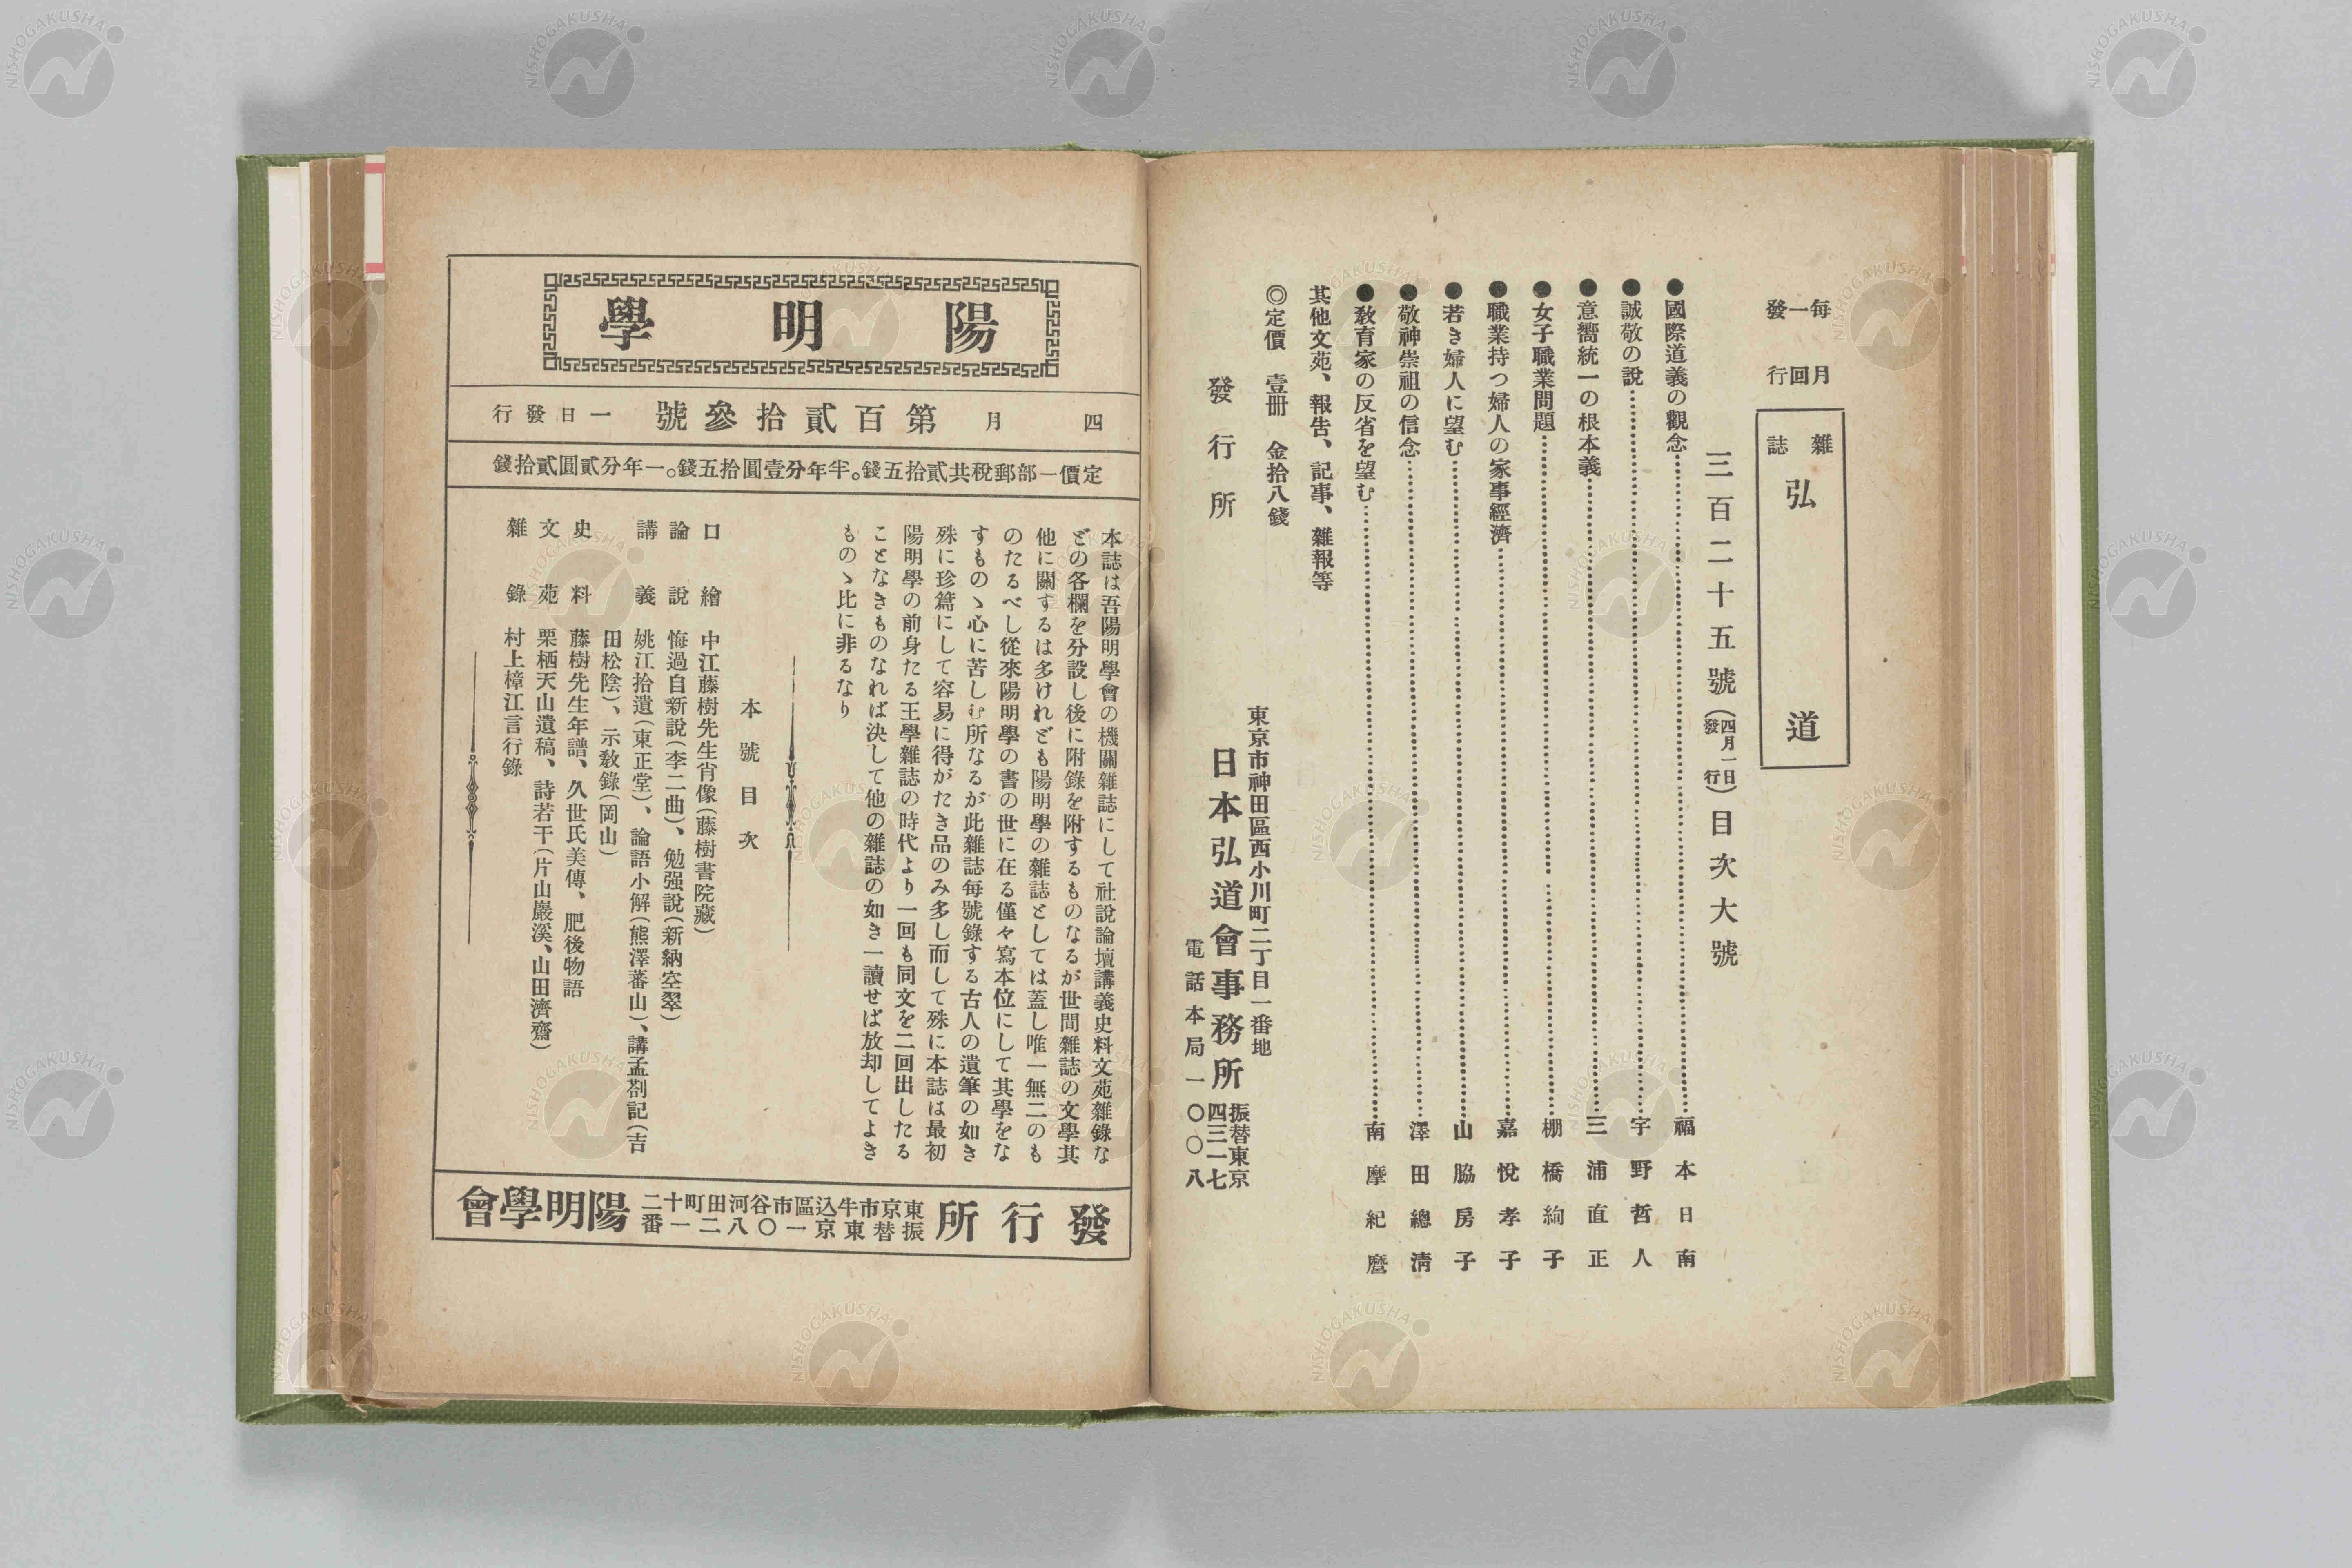 每月一回發行
雜誌 弘道
三百二十五號（四月一日發行）目次大號
●國際道義の觀念……福本日南
●誠敬の說……宇野哲人
●意嚮統一の根本義……三浦直正
●女子職業問題……棚橋絢子
●職業持つ婦人の家事經濟……嘉悅孝子
●若き婦人に望む……山脇房子
●敬神崇祖の信念……澤田總淸
●教育家の反省を望む……南摩紀麿
其他文苑、報告、記事、雜報等
◎定價 壹册 金拾八錢
東京市神田區西小川町二丁目一番地
發行所 日本弘道會事務所
振替東京四三一七
電話本局一〇〇八
陽明學
四月 第百貳拾參號 一日發行
定價一部郵稅共貳拾五錢。半年分壹圓拾五錢。一年分貳圓貳拾錢
本誌は吾陽明學會の機關雜誌にして社說論壇講義史料文苑雜錄な
どの各欄を分設し後に附錄を附するものなるが世間雜誌の文學其
他に關するは多けれども陽明學の雜誌としては蓋し唯一無二のも
のたるべし從來陽明學の書の世に在る僅々寫本位にして其學をな
すものゝ心に苦しむ所なるが此雜誌每號錄する古人の遺筆の如き
殊に珍篇にして容易に得がたき品のみ多し而して殊に本誌は最初
陽明學の前身たる王學雜誌の時代より一回も同文を二回出したる
ことなきものなれば決して他の雜誌の如き一讀せば放却してよき
ものゝ比に非るなり
本號目次
口繪 中江藤樹先生肖像（藤樹書院藏）
論說 悔過自新說（李二曲）、勉强說（新納空翠）
講義 姚江拾遺（東正堂）、論語小解（熊澤蕃山）、講孟劄記（吉
田松陰）、示教錄（岡山）
史料 藤樹先生年譜、久世氏美傳、肥後物語
文苑 栗栖天山遺稿、詩若干（片山巖溪、山田濟齋）
雜錄 村上樟江言行錄
發行所 東京市牛込區市谷河田町十二
振替東京一〇八二一番 陽明學會
NISHOGAKUSHA